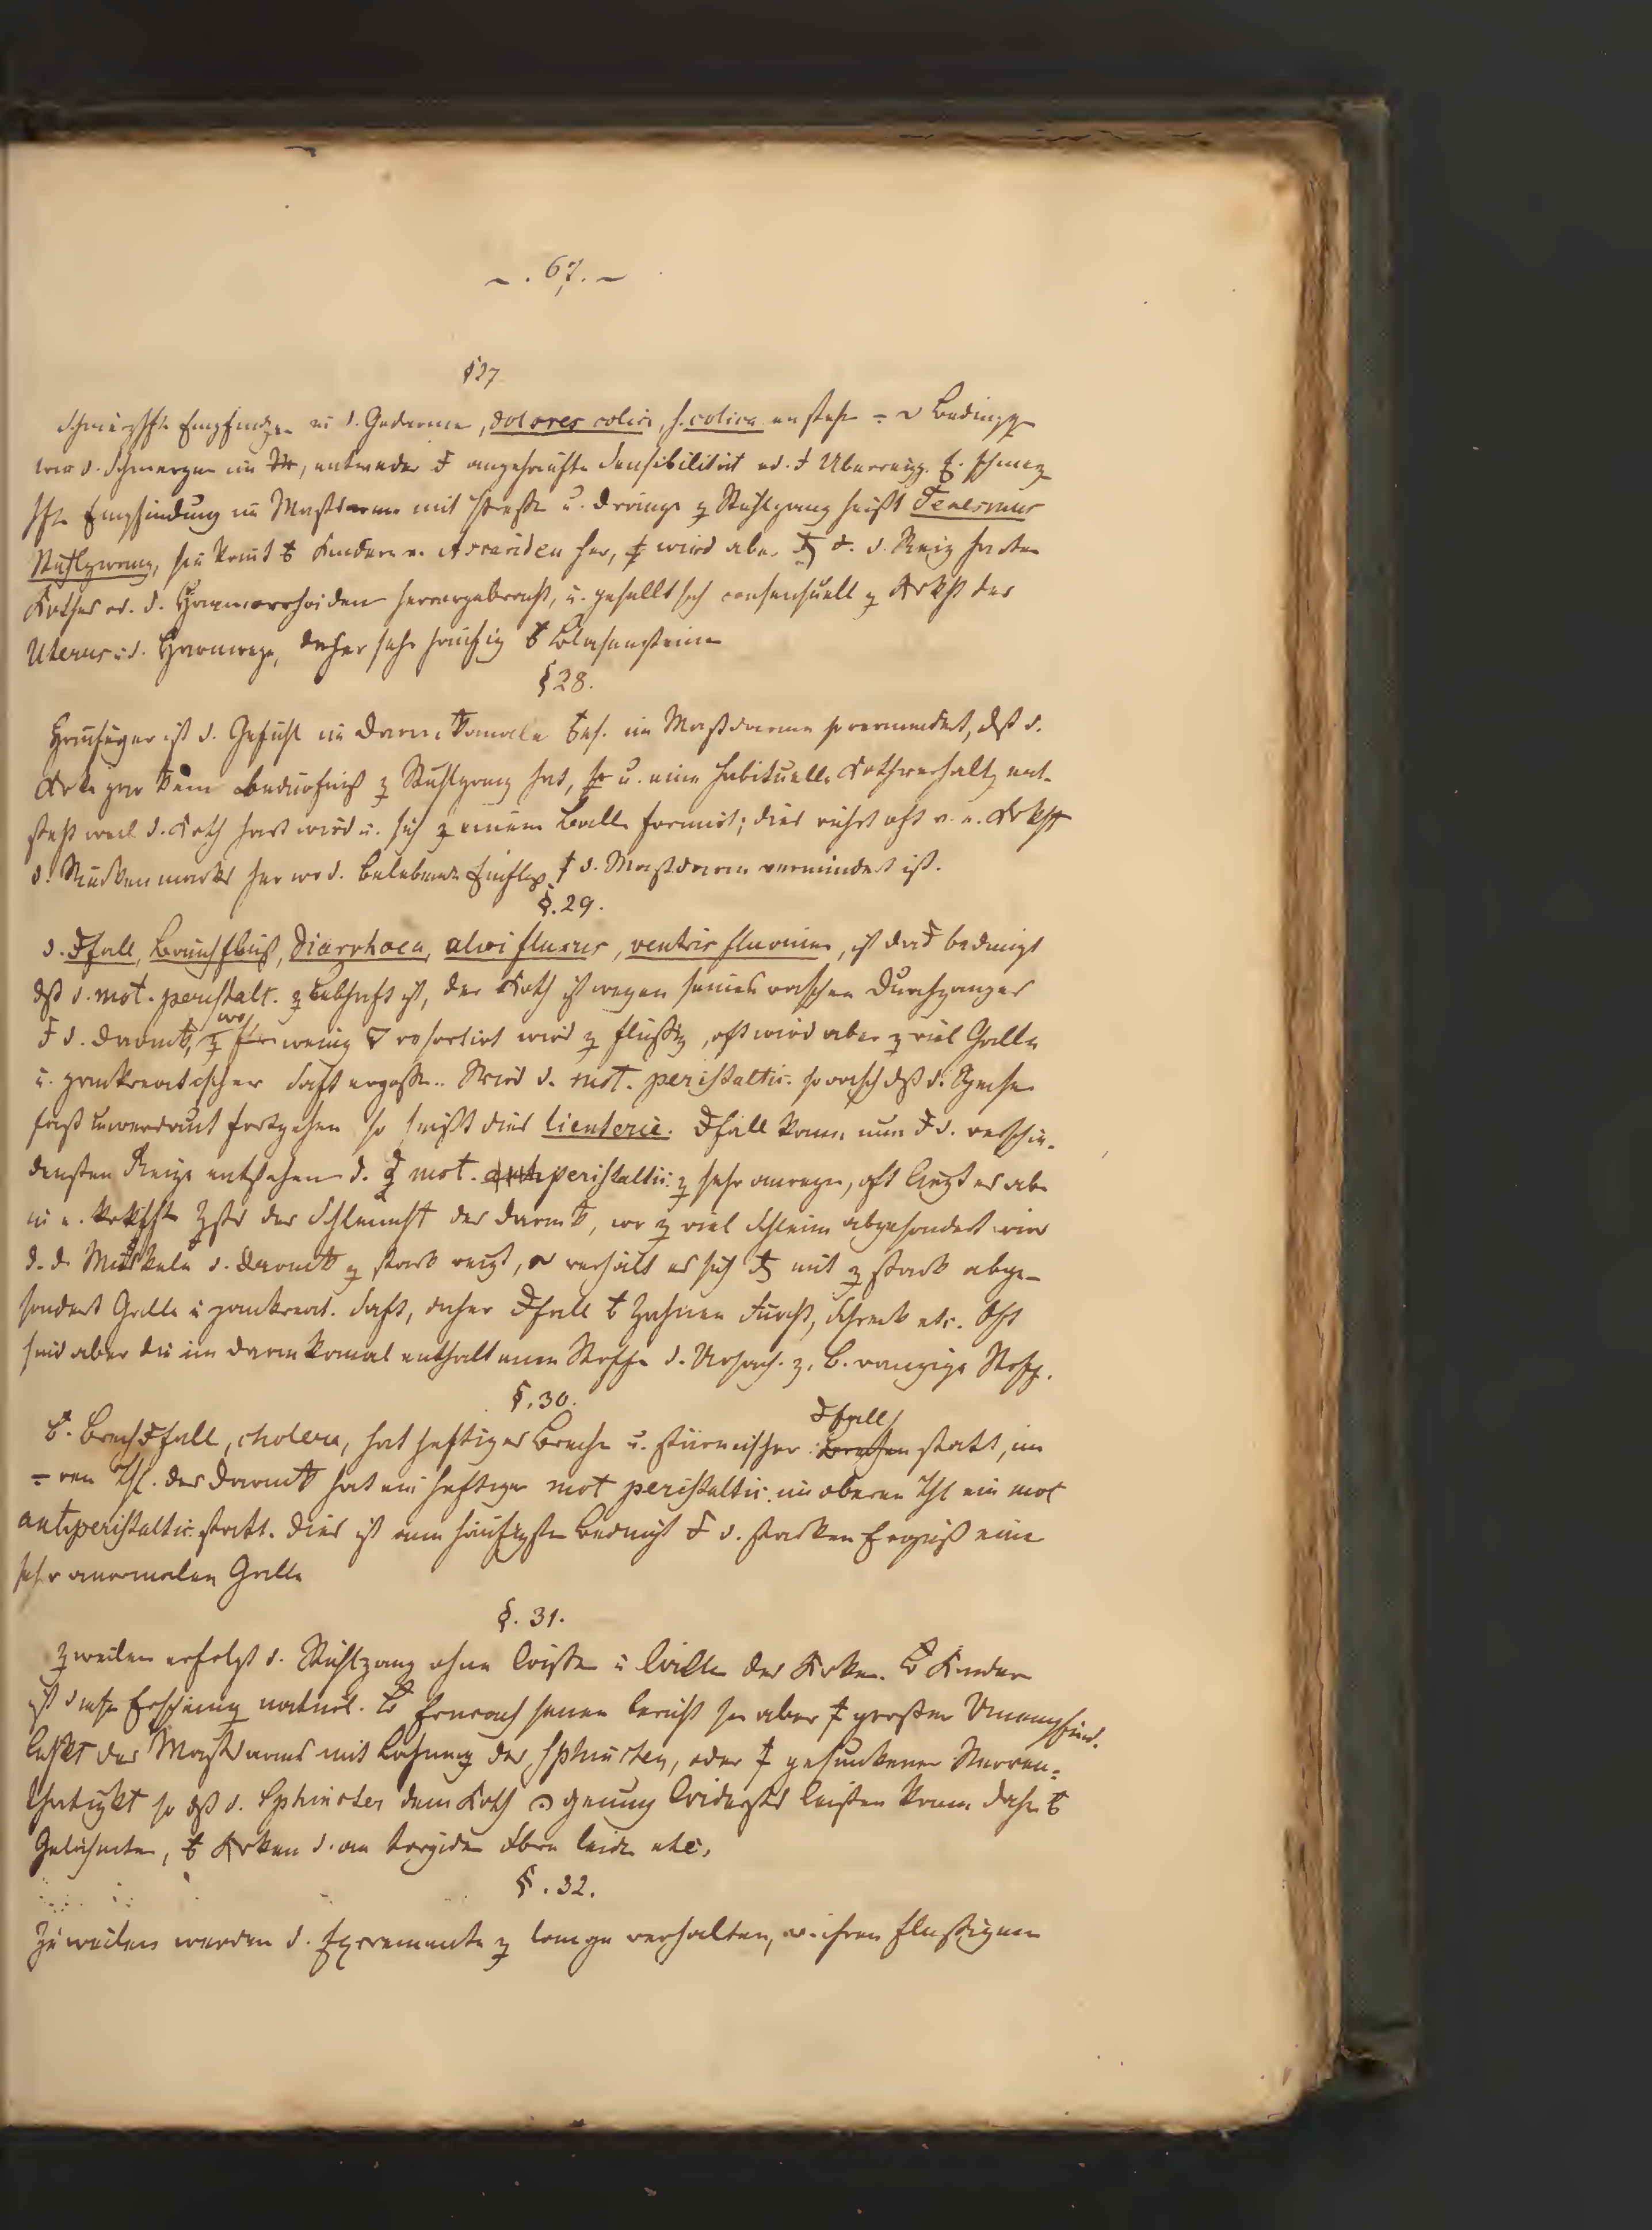 – . 67. –
§27
Schmerzhfte Empfindgen in d. Gedärme, dolores colici, s. colica entstehn Bedinggg
wie d. Schmerzen im entweder angehäufte Sensibilität od. Überreizg. schmerz
hfte Empfindung im Mastdarme mit Pressen u. Drange z Stuhlgang heißt Tenesmus
Stuhlzwang, sie komt Kindern v. Ascariden her, wird aber d. Reiz harten
Kothes od. d. Haemorrhoiden hervorgebracht, u. gesellt sich consensuell z Krkht des
Uterus u d. Harnwege, daher sehr häufig Blasensteine
§28.
Häufiger ist d. Gefühl im Darmkanale bes. im Mastdarme so vermindert, dß d.
Krke gar kein Bedürfniß z Stuhlgang hat, u. eine habituelle Kothverhaltg ent-
steht weil d. Koth hart wird u. sich z einem Balle formirt; dies rührt oft v. e. Krkht
d. Rückenmarks her wo d. belebende Einfluß d. Mastdarm vermindert ist.
§.29.
d. fall, Bauchfluß, Diarrhoea, alvi fluxus, ventris fluvium, ist bedingt
dß d. mot. peristalt. z lebhaft ist, der Koth ist wegen seines raschen Durchganges
d. Darmk, wo wenig resorbirt wird z flüßig, oft wird aber z viel Galle
u. pankreatischer Saft ergoßen. Wird d. mot. peristaltic. so rasch dß d. Speisen
fast unverdaut fortgehen so heißt dies lienterie. fall kann nun d. verschie-
densten Reize entstehen d. mot. peristaltic. z sehr anregen, oft liegt es ab
in e. krkhften Zstd der Schleimht des Darmk, wo z viel Schleim abgesondert wird
d. d. Muskeln d. Darmk z stark reizt, verhält es sich mit z stark abge-
sondert Galle u pankreat. Saft, daher fall Zahnen Furcht, Schreck etc. Oft
sind aber die im Darmkanal enthaltenen Stoffe d. Ursach. z. B. ranzige Stoffe.
§.30.
fall
Brech fall, cholera, hat heftiges Brechen u. stürmischer Brechen statt, im
ren Thl. des Darmk hat ein heftiger mot peristaltic. im oberen Thl ein mot
antiperistaltic. statt. Dies ist am häufigsten bedingt d. starken Erguß eine
sehr anormalen Galle
§. 31.
Zweilen erfolgt d. Stuhlgang ohne Wißen u Willen des Krken. Kinder
ist diese Erscheinung natürl. Erwachsenen beruht sie aber großer Unempfind.
lichkt des Mastdarms mit Lähmung der Sphincten, oder gesunkener Nerven-
thätigkt so dß d. Sphincter dem Koth genug Widerstd leisten kann daher
Gelähmten, Krken d. an torpiden leiden etc.
§. 32.
Zuweilen werden d. Excremente z lange verhalten, v. ihren flüßigen